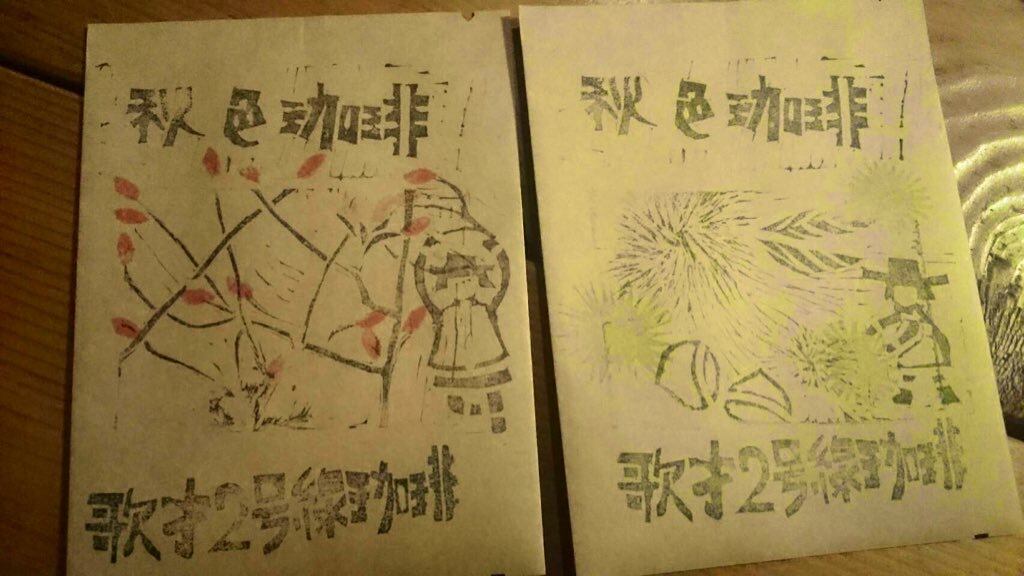 秋色珈琲
歌才2号線珈琲
秋色珈琲
歌才2号線珈琲